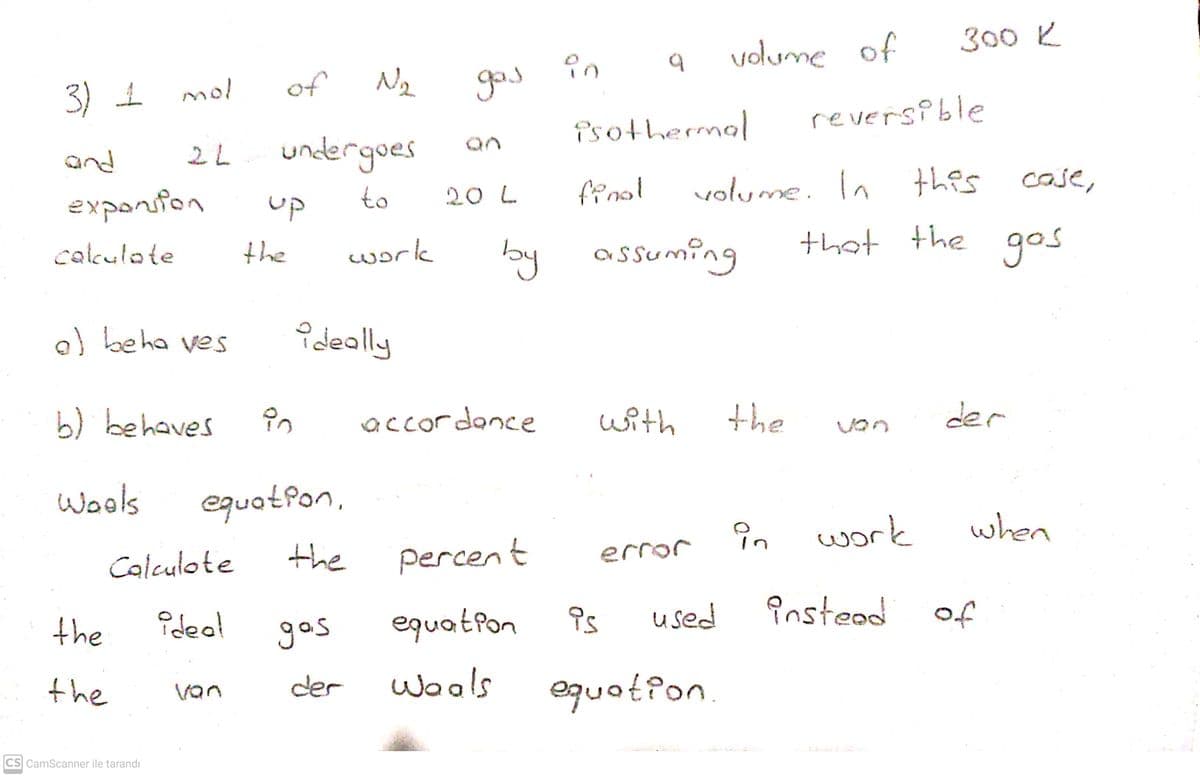 3) 1 mol of N2 gas in a volume of 300 K
and 2L undergoes an isothermal reversible
expansion up to 20 L final volume. In this case,
calculate the work by assuming that the gas
a) behaves ideally
b) behaves in accordance with the van der
Waals equation.
Calculate the percent error in work when
the ideal gas equation is used instead of
the van der Waals equation.
CS CamScanner ile tarandı